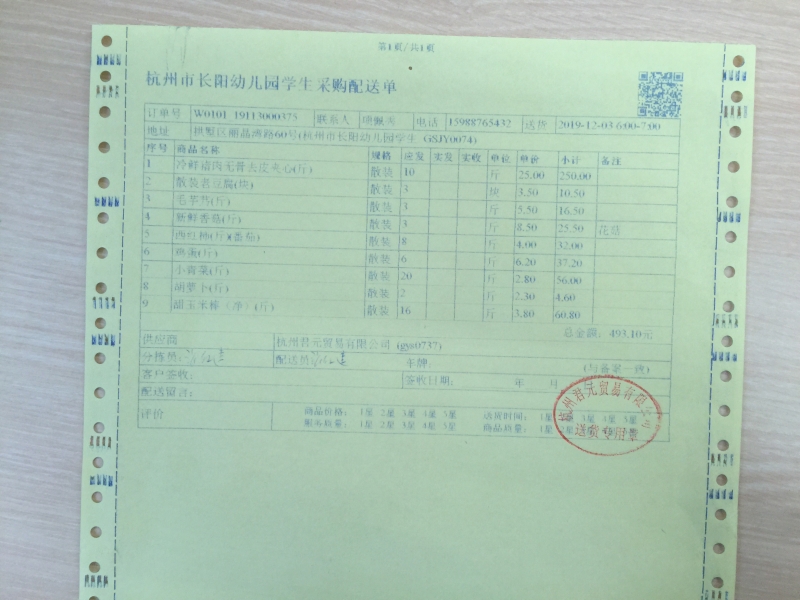 第1页/共1页
杭州市长阳幼儿园学生采购配送单
订单号 W0101 19113000375 联系人 电话 15988765432 送货 2019-12-03 6:00-7:00
地址 拱墅区丽晶湾路60号(杭州市长阳幼儿园学生 GSJY0074)
序号 商品名称 规格 速发 实发 实收 单位 单价 小计 备注
1 冷鲜猪肉无骨去皮夹心(斤) 散装 10 斤 25.00 250.00
2 散装老豆腐(块) 散装 3 块 3.50 10.50
3 毛芋艿(斤) 散装 3 斤 5.50 16.50
4 新鲜香菇(斤) 散装 3 斤 8.50 25.50 花菇
5 西红柿(斤)(番茄) 散装 8 斤 4.00 32.00
6 鸡蛋(斤) 散装 6 斤 6.20 37.20
7 小青菜(斤) 散装 20 斤 2.80 56.00
8 胡萝卜(斤) 散装 2 斤 2.30 4.60
9 甜玉米棒(净)(斤) 散装 16 斤 3.80 60.80
总金额: 493.10元
供应商 杭州君元贸易有限公司 (gys0737)
分拣员: 配送员: 车牌: (与备案一致)
客户签收: 签收日期: 年 月
配送留言:
评价 商品价格: 1星 2星 3星 4星 5星 送货时间: 1星 2星 3星 4星 5星
服务质量: 1星 2星 3星 4星 5星 商品质量: 1星 2星
杭州君元贸易有限公司
送货专用章